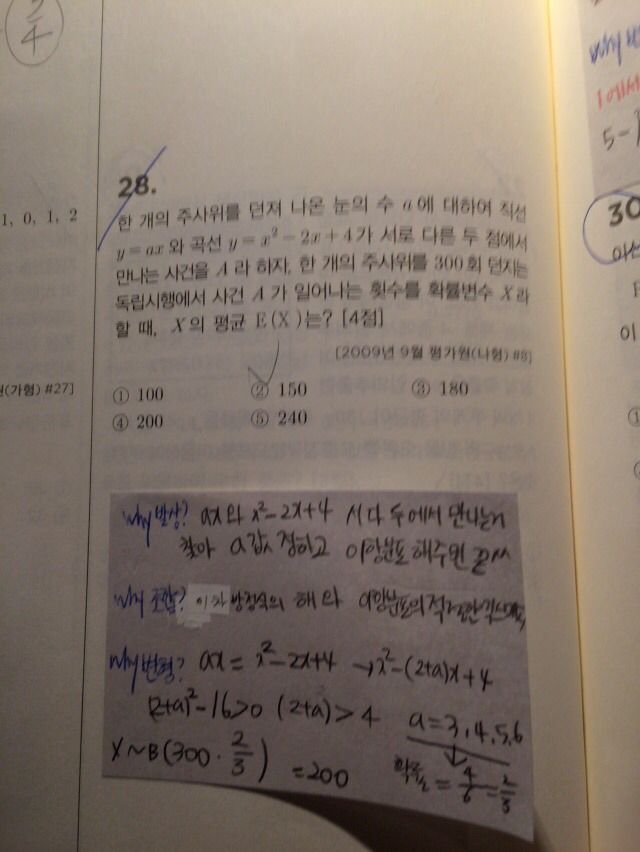 2/4
1, 0, 1, 2
(가형) #27]
28.
한 개의 주사위를 던져 나온 눈의 수 a에 대하여 직선
y=ax와 곡선 y=x²-2x+4가 서로 다른 두 점에서
만나는 사건을 A라 하자. 한 개의 주사위를 300회 던지는
독립시행에서 사건 A가 일어나는 횟수를 확률변수 X라
할 때, X의 평균 E(X)는? [4점]
[2009년 9월 평가원(나형) #8]
① 100 ② 150 ③ 180
④ 200 ⑤ 240
why 발상? ax와 x²-2x+4 서다 두에서 만나는거
찾아 a값 정하고 이항분포 해주면 끝
why 조합? 이차방정식의 해와 이항분포의 적절한
why 변형? ax = x²-2x+4 → x²-(2+a)x+4
(2+a)²-16>0 (2+a)>4 a=3,4,5,6
X~B(300·2/3) =200 확률 = 4/6 = 2/3
why
1에서
5-
30
이